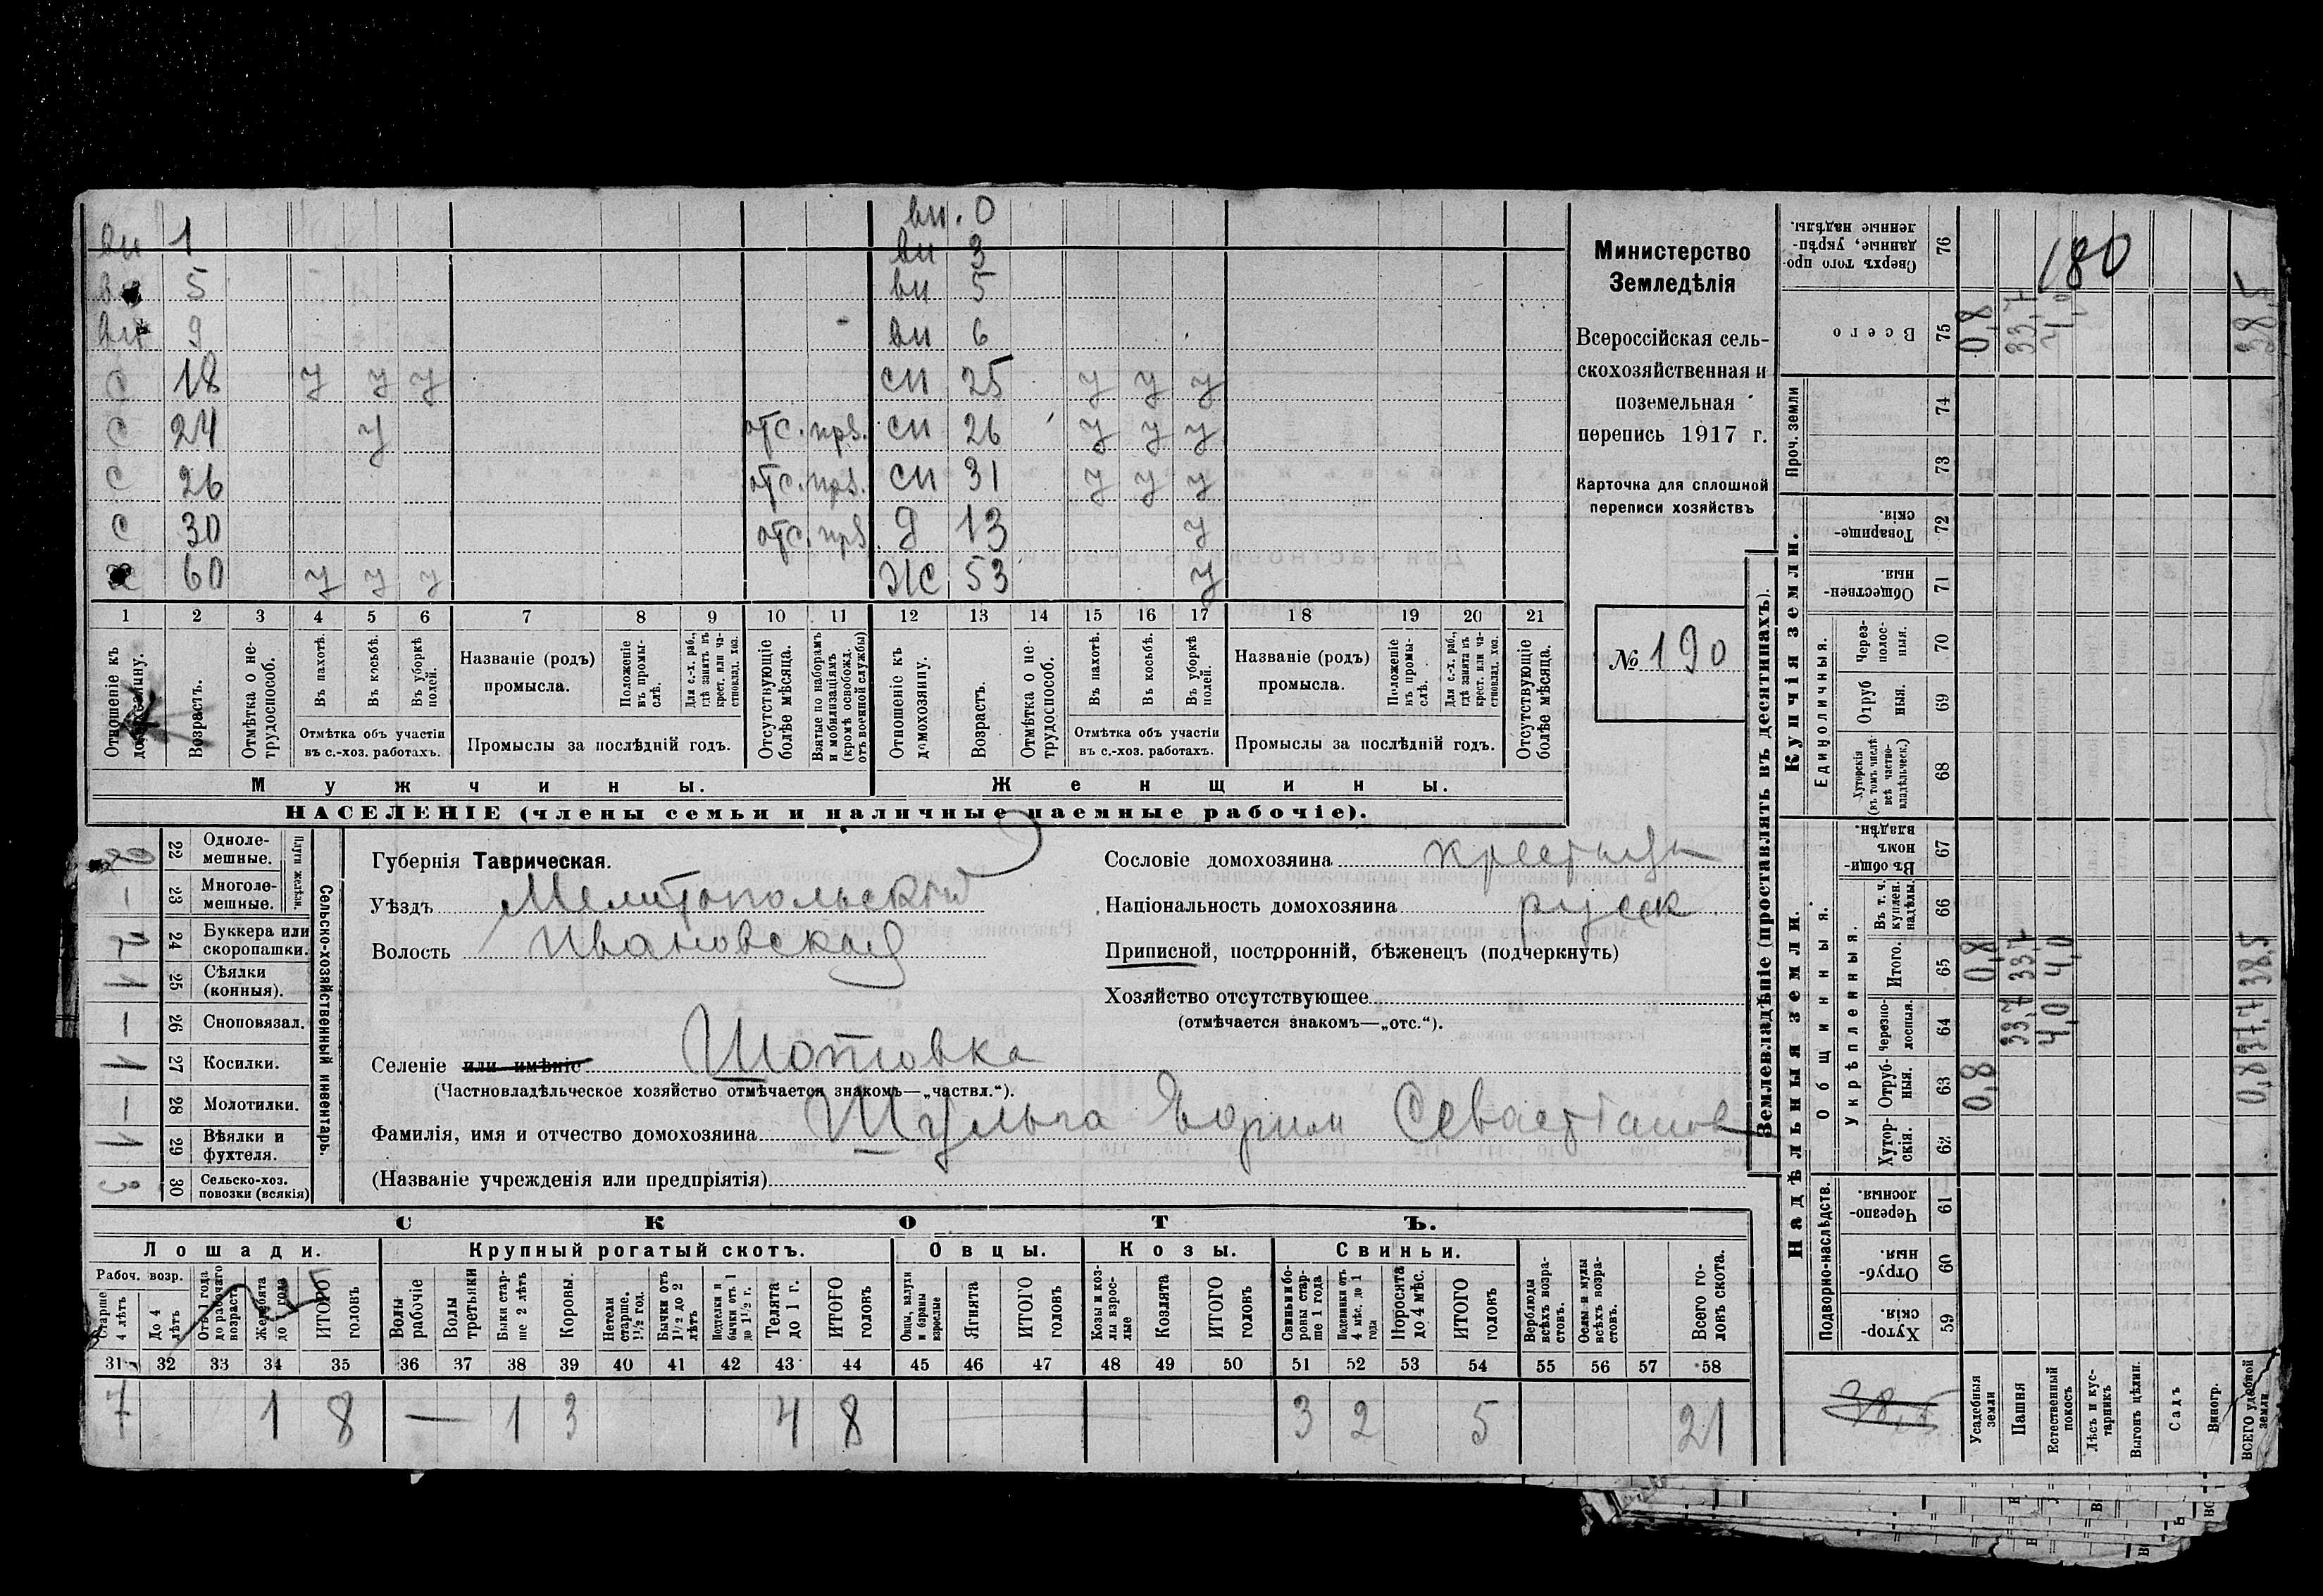 вн. 0
вн 1 вн 3
5 вн 5
вн 9 вн 6
с 18 у у у сн 25 у у у
с 24 у отс. прв. сн 26 у у у
с 26 отс. прв. сн 31 у у у
с 30 отс. прв д 13 у
х 60 у у у ж 53 у
1 2 3 4 5 6 7 8 9 10 11 12 13 14 15 16 17 18 19 20 21
Отношеніе къ домохозяину.
Возрастъ.
Отмѣтка о нетрудоспособ.
Въ пахотѣ.
Въ косьбѣ.
Въ уборкѣ полей.
Отмѣтка объ участіи въ с.-хоз. работахъ.
Названіе (родъ) промысла.
Положеніе въ промыслѣ.
Для с.-х. раб., гдѣ занятъ въ крест. или частновлад. хоз.
Промыслы за послѣдній годъ.
Отсутствующіе болѣе мѣсяца.
Взятые по наборамъ и мобилизаціямъ (кромѣ освобожд. отъ военной службы)
Отношеніе къ домохозяину.
Возрастъ.
Отмѣтка о нетрудоспособ.
Въ пахотѣ.
Въ косьбѣ.
Въ уборкѣ полей.
Отмѣтка объ участіи въ с.-хоз. работахъ.
Названіе (родъ) промысла.
Положеніе въ промыслѣ.
Для с.-х. раб., гдѣ занята въ крест. или частновлад. хоз.
Промыслы за послѣдній годъ.
Отсутствующіе болѣе мѣсяца.
Мужчины. Женщины.
НАСЕЛЕНІЕ (члены семьи и наличные наемные рабочіе).
Министерство
Земледѣлія
Всероссійская сель-
скохозяйственная и
поземельная
перепись 1917 г.
Карточка для сплошной
переписи хозяйствъ
№ 190
Сельско-хозяйственный инвентарь.
Плуги желѣзн.
2 22 Одноле-мешные.
— 23 Многоле-мешные.
1 24 Буккера или скоропашки.
1 25 Сѣялки (конныя).
— 26 Сноповязал.
1 27 Косилки.
— 28 Молотилки.
1 29 Вѣялки и фухтеля.
3 30 Сельско-хоз. повозки (всякія)
Губернія Таврическая.
Уѣздъ Мелитопольскій
Волость Ивановская
Сословіе домохозяина крестьян
Національность домохозяина русск
Приписной, посторонній, бѣженецъ (подчеркнуть)
Хозяйство отсутствующее
(отмѣчается знакомъ—„отс.“).
Селеніе или имѣніе Шотовка
(Частновладѣльческое хозяйство отмѣчается знакомъ—„частвл.“).
Фамилія, имя и отчество домохозяина Шульга Ефим Севастьянов
(Названіе учрежденія или предпріятія)
СКОТЪ.
Лошади. Крупный рогатый скотъ. Овцы. Козы. Свиньи.
Рабоч. возр.
Старше 4 лѣтъ
До 4 лѣтъ
Отъ 1 года до рабочаго возраст.
Жеребята до года
ИТОГО головъ
Волы рабочіе
Волы третьяки
Быки старше 2 лѣтъ
Коровы.
Нетели старше. 1½ год.
Бычки отъ 1½ до 2 лѣтъ
Подтелки и бычки отъ 1 до 1½ г.
Телята до 1 г.
ИТОГО головъ
Овцы, валухи и бараны взрослые
Ягнята
ИТОГО головъ
Козы и козлы взрослые
Козлята
ИТОГО головъ
Свиньи и боровы старше 1 года
Подсвинки отъ 4 мѣс. до 1 года
Поросята до 4 мѣс.
ИТОГО головъ
Верблюды всѣхъ возрастовъ.
Ослы и мулы всѣхъ возрастовъ.
Всего головъ скота.
31 32 33 34 35 36 37 38 39 40 41 42 43 44 45 46 47 48 49 50 51 52 53 54 55 56 57 58
7 1 8 — 1 3 4 8 3 2 5 21
Землевладѣніе (проставлять въ десятинахъ).
Надѣльныя земли. Купчія земли. Проч. земли
Подворно-наслѣдств.
Общинныя.
Укрѣпленныя.
Единоличныя.
76 Сверхъ того проданные, укрѣпленные надѣлы. 180
75 Всего 0,8 33,7 4,0 38,5
74
73
72 Товарищескія.
71 Общественныя.
70 Черезполосныя.
69 Отрубныя.
68 Хуторскія (въ томъ числѣ всѣ частновладѣльческ.)
67 Въ общинномъ владѣн.
66 Въ т. ч. куплен. надѣлы.
65 Итого. 0,8 33,7 4,0 38,5
64 Черезполосныя. 33,7 4,0 37,7
63 Отрубныя. 0,8 0,8
62 Хуторскія.
61 Черезполосныя.
60 Отрубныя.
59 Хуторскія.
38,5
Усадебныя земли
Пашня
Естественный покосъ
Лѣсъ и кустарникъ
Выгонъ цѣлин.
Садъ
Виногр.
ВСЕГО удобной земли